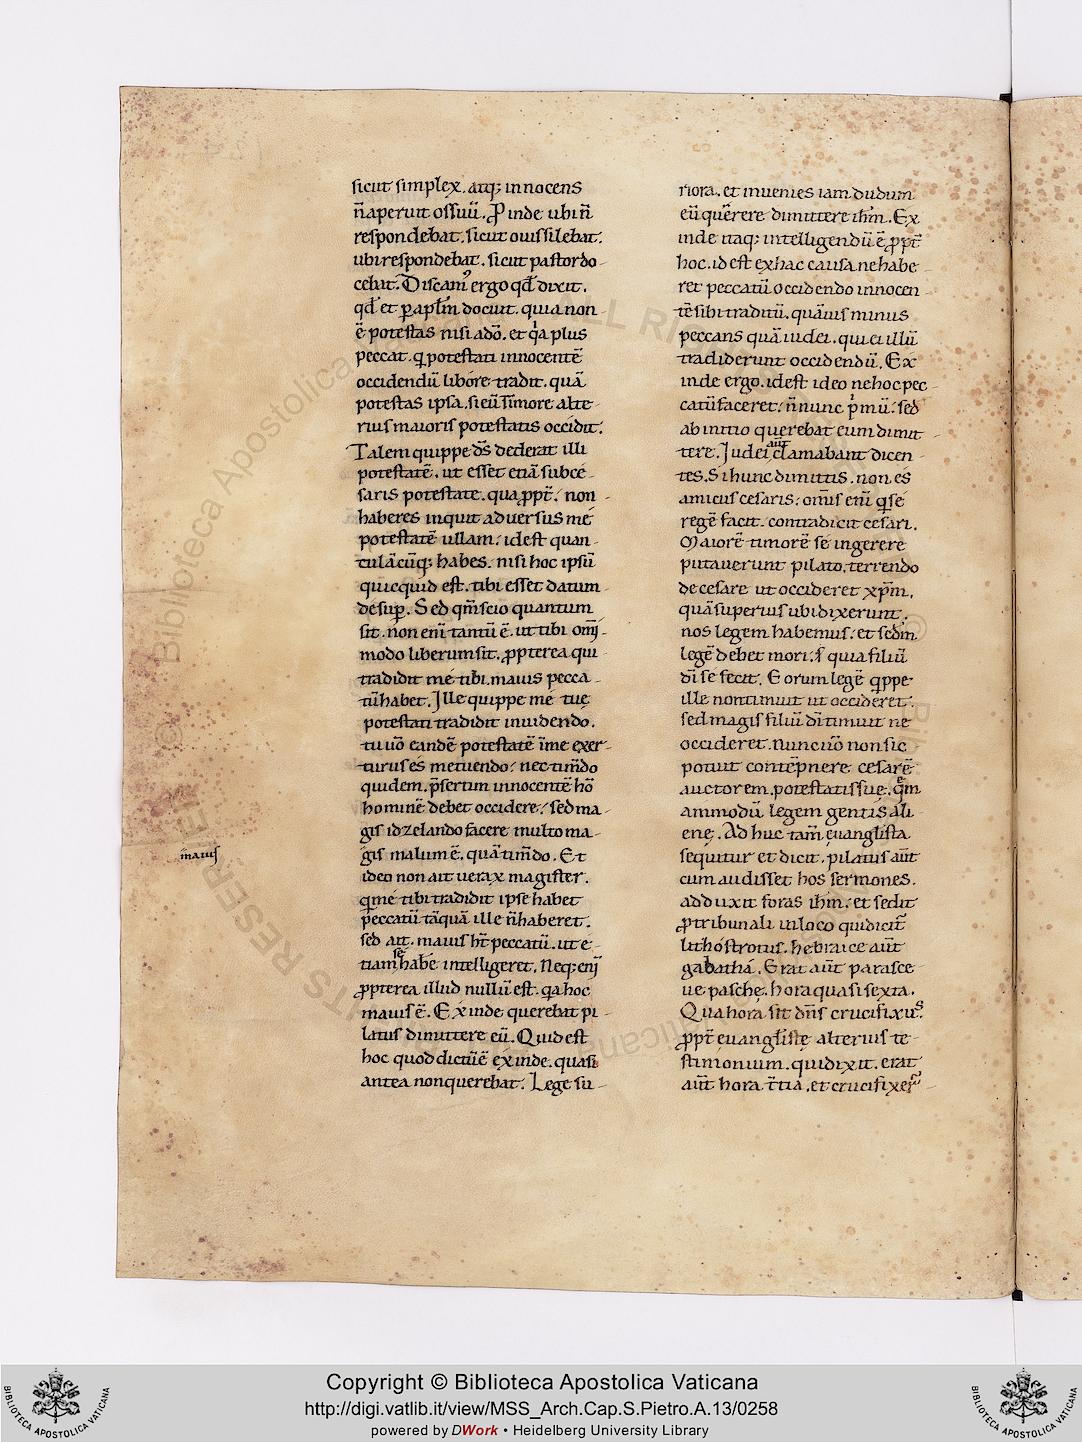 sicut simplex. atq; innocens
n̄ aperuit os suū. P̄inde ubi n̄
respondebat. sicut ouis silebat.
ubi respondebat. sicut pastor do-
cebat. Discam᾽ ergo qd̄ dixit.
qd̄ et p̄ aplm̄ docuit. quia non
ē potestas nisi a dō. et qͥa plus
peccat. q̄ potestati innocentē
occidendū libore tradit. quā
potestas ipsa. si eū timore alte-
rius maioris potestatis occidit.
Talem quippe ds̄ dederat illi
potestatē. ut esset etiā sub ce-
saris potestate. quapropt̄. non
haberes inquit aduersus me
potestatē ullam. id est quan-
tulācūq; habes. nisi hoc ipsū
quicquid est. tibi esset datum
desup̄. Sed qm̄ scio quantum
sit. non eni tantū ē. ut tibi omi-
modo liberum sit. ꝓpterea qui
tradidit me tibi. maius pecca-
tū habet. Ille quippe me tuę
potestati tradidit inuidendo.
tu uō eandē potestatē ī me exer-
turus es metuendo. nec tim̄do
quidem. p̄sertim innocentē hō
hominē debet occidere. sed ma-
gis id zelando facere multo ma-
gis malum ē. quā tim̄do. Et
ideo non ait uerax magister.
q̄ me tibi tradidit ipse habet
peccatū tāquā ille n̄ haberet.
sed ait. maius ht̄ peccatū. ut e-
tiam se habe intelligeret. Neq; eni
ꝓpterea illud nullū est. qa hoc
maius ē. Ex inde querebat pi-
latus dimittere eū. Quid est
hoc quod dictū ē ex inde. quasi
antea non querebat. Lege su-
maius
riora. et inuenies iam dudum
eū querere dimittere ihm̄. Ex
inde itaq; intelligendū ē ꝓpt̄
hoc. id est ex hac causa ne habe-
ret peccatū occidendo innocen
tē sibi traditū. quāuis minus
peccans quā iudei. qui ei illū
tradiderunt occidendū. Ex
inde ergo. id est ideo ne hoc pec-
catū faceret. n̄ nunc pͥmū. sed
ab initio querebat eum dimit-
tere. Iudei aut̄ clamabant dicen-
tes. Si hunc dimittis. non es
amicus cesaris. omīs eni q̄ se
regē facit. contradicit cesari.
Maiorē timorē se ingerere
putauerunt pilato. terrendo
de cesare ut occideret xp̄m.
quā superius ubi dixerunt.
nos legem habemus. et scdm̄
legē debet mori. quia filiū
dī se fecit. Eorum legē q̄ppe
ille non timuit ut occideret.
sed magis filiū dī timuit ne
occideret. nunc uō non sic
potuit contēpnere cesarē
auctorem. potestatis suę. quem
ammodū legem gentis ali-
enę. Adhuc tam̄ euangl̄ista
sequitur et dicit. pilatus aūt
cum audisset hos sermones.
adduxit foras ihm̄. et sedit
ꝓ tribunali in loco qui dicit̄
lithostrotus. hebraice aūt
gabatha. Erat aūt parasce-
ue pasche. hora quasi sexta.
Qua hora sit dn̄s crucifixus.
ꝓpt̄ euangl̄istę alterius te-
stimonium. qui dixit. erat
aūt hora t̄tia. et crucifixer̄
Copyright © Biblioteca Apostolica Vaticana
http://digi.vatlib.it/view/MSS_Arch.Cap.S.Pietro.A.13/0258
powered by DWork • Heidelberg University Library
BIBLIOTECA APOSTOLICA VATICANA
BIBLIOTECA APOSTOLICA VATICANA